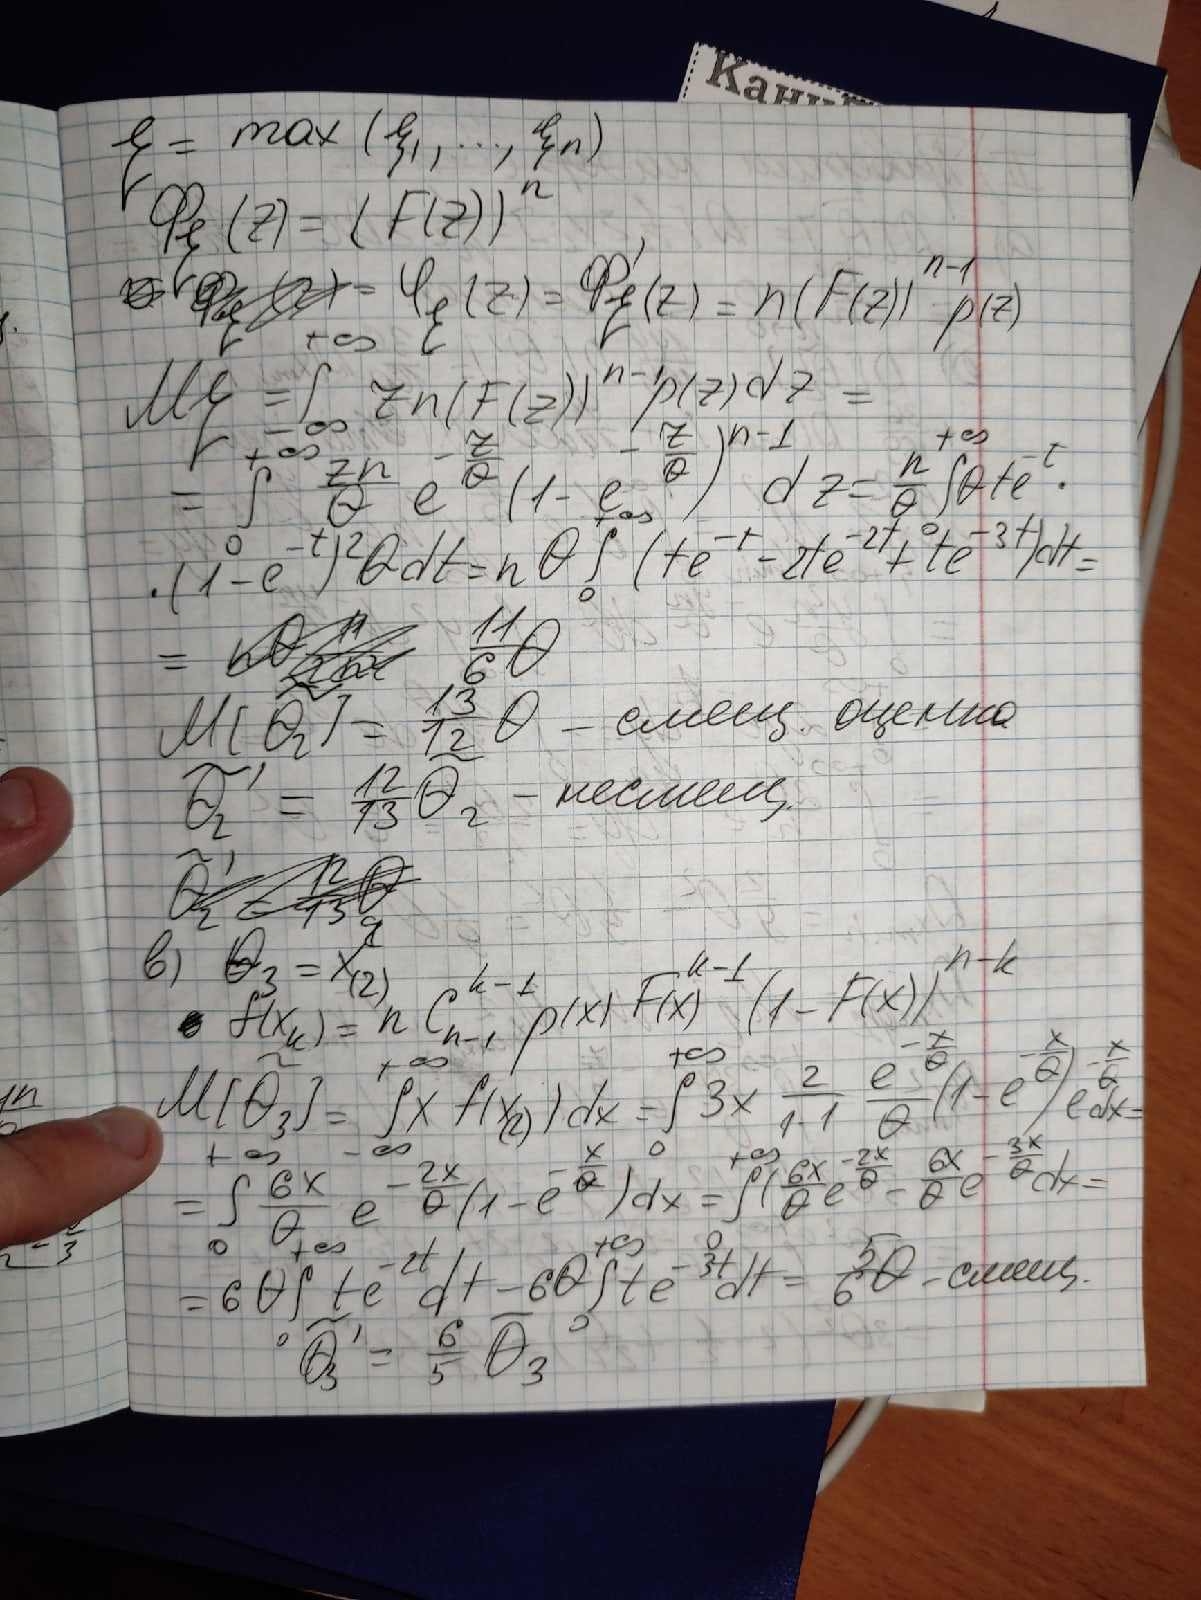 Кани
ξ = max (ξ₁, ..., ξn)
Φξ (z) = (F(z))ⁿ
= φξ (z) = Φ'ξ (z) = n (F(z))ⁿ⁻¹ p(z)
Mξ = ∫₋∞⁺∞ zn (F(z))ⁿ⁻¹ p(z) dz =
= ∫₀⁺∞ zn/θ e^(-z/θ) (1 - e^(-z/θ))ⁿ⁻¹ dz = n/θ ∫₀⁺∞ θ t e^(-t) ·
· (1 - e^(-t))² θ dt = n θ ∫₀⁺∞ (t e^(-t) - 2t e^(-2t) + t e^(-3t)) dt =
= 11/6 θ
M[θ̃₂] = 13/12 θ - смещ. оценка
θ̃₂' = 12/13 θ̃₂ - несмещ.
в) θ̃₃ = x(2)
f(xk) = n C_{n-1}^{k-1} p(x) F(x)^{k-1} (1 - F(x))^{n-k}
M[θ̃₃] = ∫₋∞⁺∞ x f(x(2)) dx = ∫₀⁺∞ 3x 2/(1·1) e^(-x/θ)/θ (1 - e^(-x/θ)) e^(-x/θ) dx =
= ∫₀⁺∞ 6x/θ e^(-2x/θ) (1 - e^(-x/θ)) dx = ∫₀⁺∞ (6x/θ e^(-2x/θ) - 6x/θ e^(-3x/θ) dx =
= 6θ ∫₀⁺∞ t e^(-2t) dt - 6θ ∫₀⁺∞ t e^(-3t) dt = 5/6 θ - смещ.
θ̃₃' = 6/5 θ̃₃